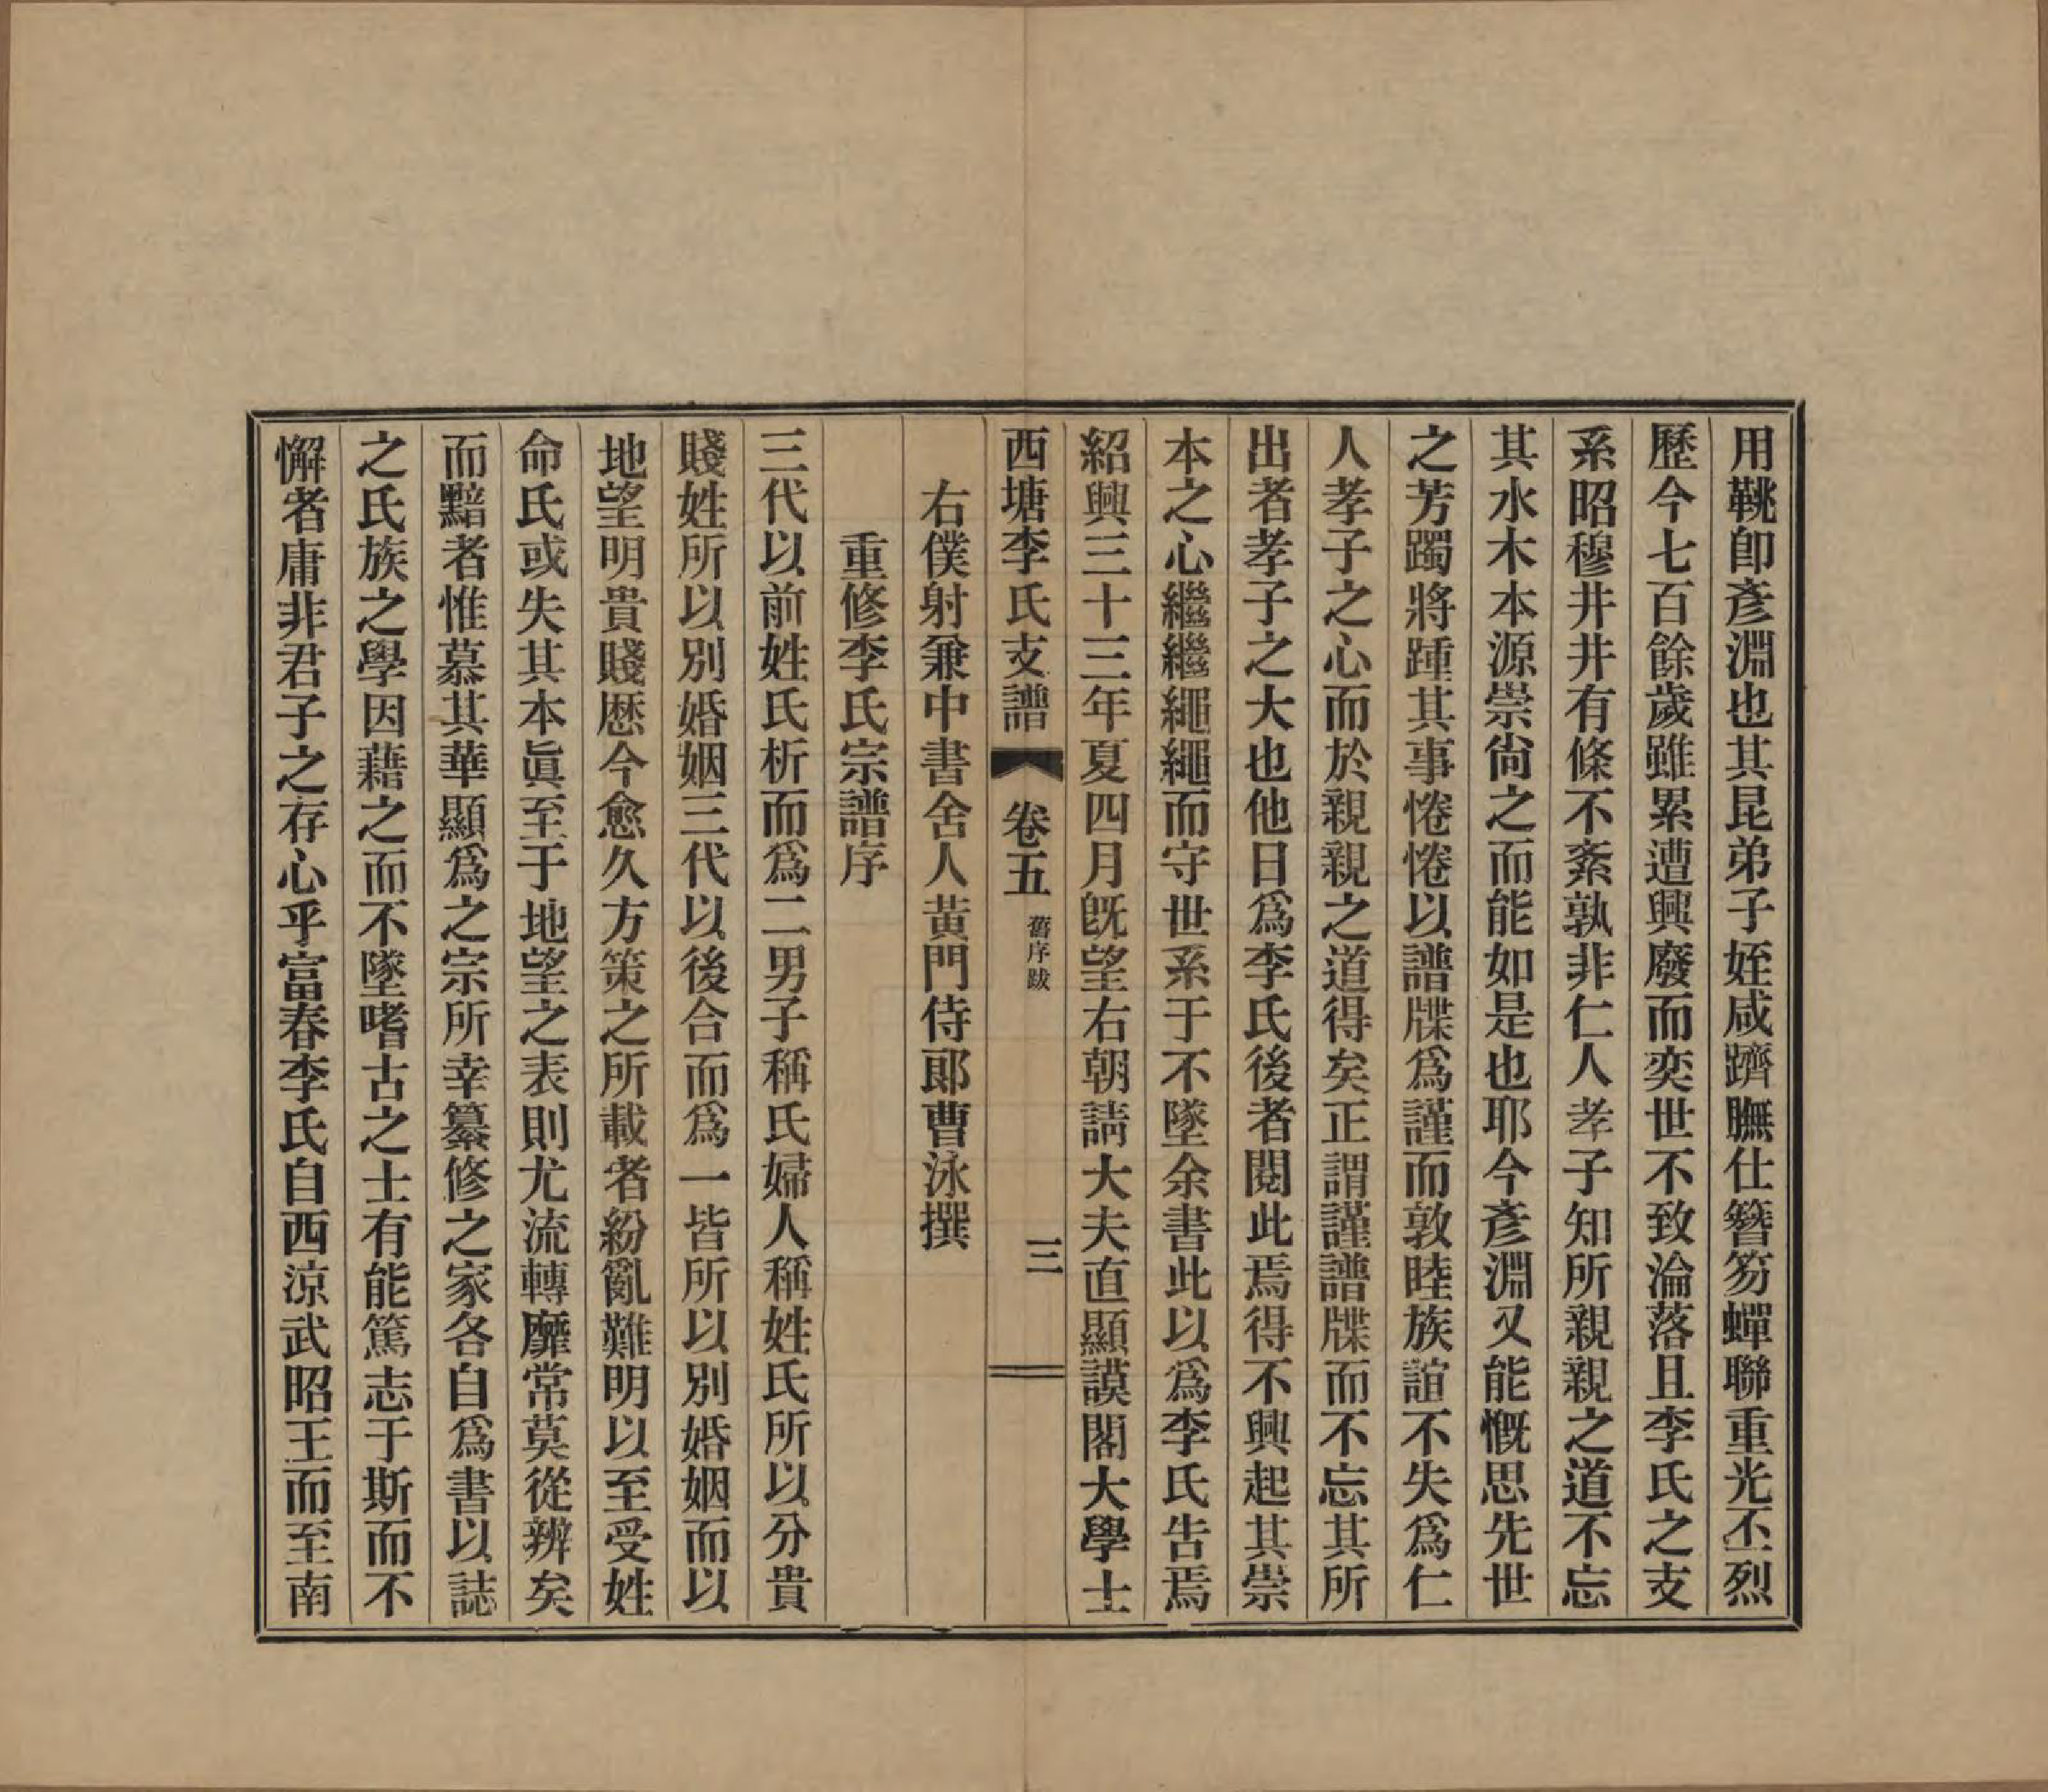 用鞉卽彥淵也其昆弟子姪咸躋膴仕簪笏蟬聯重光丕烈
歷今七百餘歲雖累遭興廢而奕世不致淪落且李氏之支
系昭穆井井有條不紊孰非仁人孝子知所親親之道不忘
其水木本源崇尙之而能如是也耶今彥淵又能慨思先世
之芳躅將踵其事惓惓以譜牒爲謹而敦睦族誼不失爲仁
人孝子之心而於親親之道得矣正謂謹譜牒而不忘其所
出者孝子之大也他日爲李氏後者閱此焉得不興起其崇
本之心繼繼繩繩而守世系于不墜余書此以爲李氏告焉
紹興三十三年夏四月旣望右朝請大夫直顯謨閣大學士
西塘李氏支譜 卷五 舊序跋 三
右僕射兼中書舍人黃門侍郞曹泳撰
重修李氏宗譜序
三代以前姓氏析而爲二男子稱氏婦人稱姓氏所以分貴
賤姓所以別婚姻三代以後合而爲一皆所以別婚姻而以
地望明貴賤歷今愈久方策之所載者紛亂難明以至受姓
命氏或失其本眞至于地望之表則尤流轉靡常莫從辨矣
而黯者惟慕其華顯爲之宗所幸纂修之家各自爲書以誌
之氏族之學因藉之而不墜嗜古之士有能篤志于斯而不
懈者庸非君子之存心乎富春李氏自西涼武昭王而至南